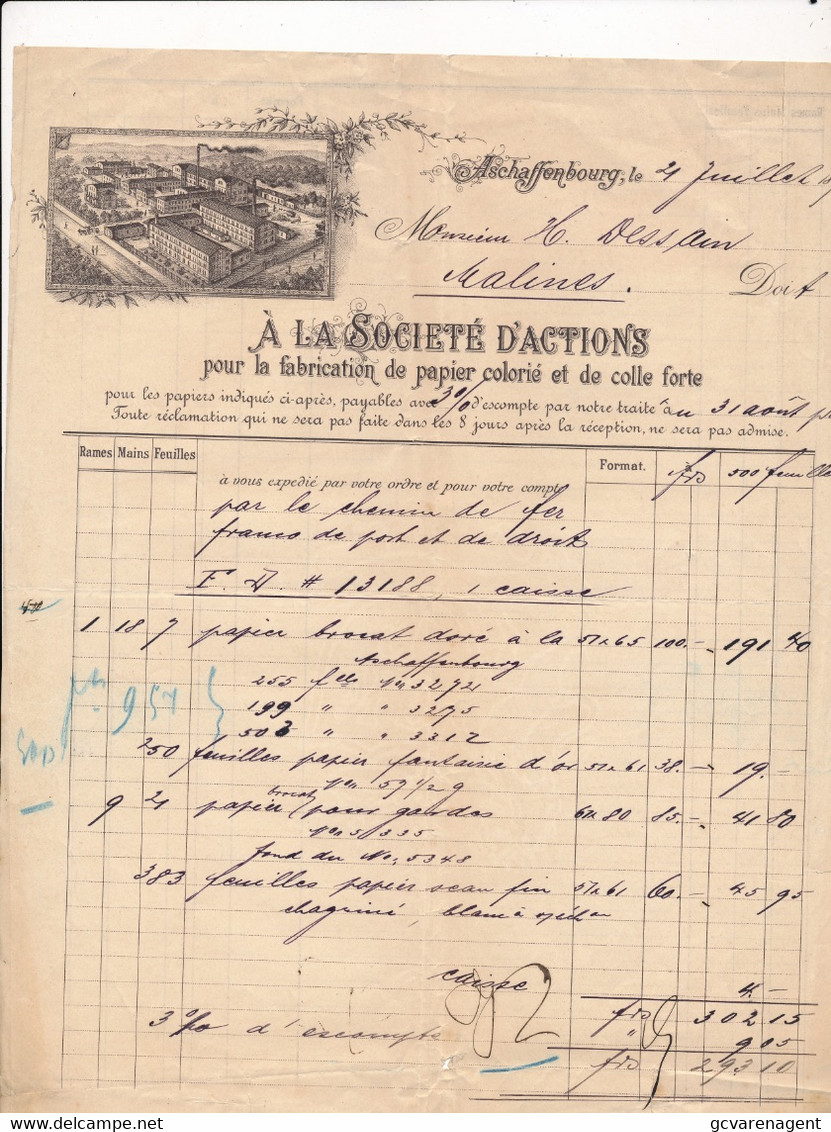 Aschaffenbourg, le 21 Juillet
Monsieur H. Dessain
Malines. Doit
À LA SOCIETÉ D'ACTIONS
pour la fabrication de papier colorié et de colle forte
pour les papiers indiqués ci-après, payables avec 3% d'escompte par notre traite au 31 août
Toute réclamation qui ne sera pas faite dans les 8 jours après la réception, ne sera pas admise.
Rames Mains Feuilles Format. frs 500 feuilles
à vous expedié par votre ordre et pour votre compte
par le chemin de fer
franco de port et de droit
F. A. # 13188, 1 caisse
1 18 7 papier brocat doré à la 51x65 100.- 191 40
Aschaffenbourg
255 flls No 3272
199 " " 3275
503 " " 3312
957
250 feuilles papier fantaisie d'or 51x61 38.- 19.-
No 59 1/2 g
9 21 papier brocat pour gardes 61x80 85.- 41 80
No 5335
fond du No. 5348
383 feuilles papier fin 51x61 60.- 45 95
chagriné, blanc
caisse 4.-
frs 302 15
3% d'escompte " 9 05
frs 293 10
gcvarenagent